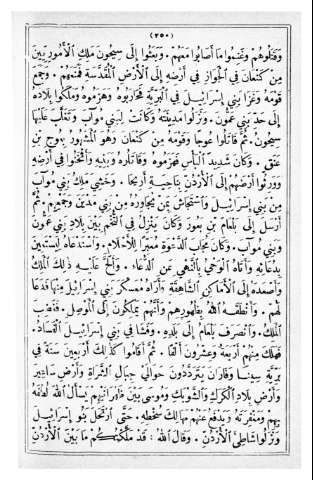 (٢٥٠)
وقتلوهم وغنموا ما أصابوا معهم . وبعثوا إلى سيحون ملك الأموربين
من كنعان في الجواز في أرضه إلى الأرض المقدسة فمنعهم . وجمع
قومه وغزا بني إسرائيل في البرية فحاربوه وهزموه وملكوا بلاده
إلى حد بني عمون . ونزلوا مدينته وكانت لبني موآب وتغلب عليها
سيحون . ثم قاتلوا عوجا وقومه من كنعان وهو المشهور بعوج بن
عنق . وكان شديد البأس فهزموه وقاتلوه وبنيه وأثخنوا في أرضه
وورثوا أرضهم إلى الأردن بناحية أريحا . وخشي ملك بني موآب
من بني إسرائيل واستجاش بمن يجاوره من بني مدين وجمعهم . ثم
أرسل إلى بلعام بن بعور وكان ينزل في التخم بين بلاد بني عمون
وبني موآب . وكان مجاب الدعوة معبرا للأحلام . واستدعاه ليستعين
بدعائه وأتاه الوحي بالنهي عن الدعاء . وألح عليه ذلك الملك
وأصعده إلى الأماكن الشاهقة وأراه معسكر بني إسرائيل منها فدعا
لهم . وأنطقه الله بظهورهم وأنهم يملكون إلى الموصل . فغضب
الملك . وانصرف بلعام إلى بلده . وفشا في بني إسرائيل الفساد .
فهلك منهم أربعة وعشرون ألفا . ثم أقاموا كذلك أربعين سنة في
برية سينا وفاران يترددون حوالي جبال الشراة وأرض ساعير
وأرض بلاد الكرك والشوبك وموسى بين ظهرانيهم يسأل الله لطفه
بهم ومغفرته ويدفع عنهم مهالك سخطه . حتى ارتحل بنو إسرائيل
ونزلوا شاطئ الأردن . وقال الله : قد ملكتكم ما بين الأردن